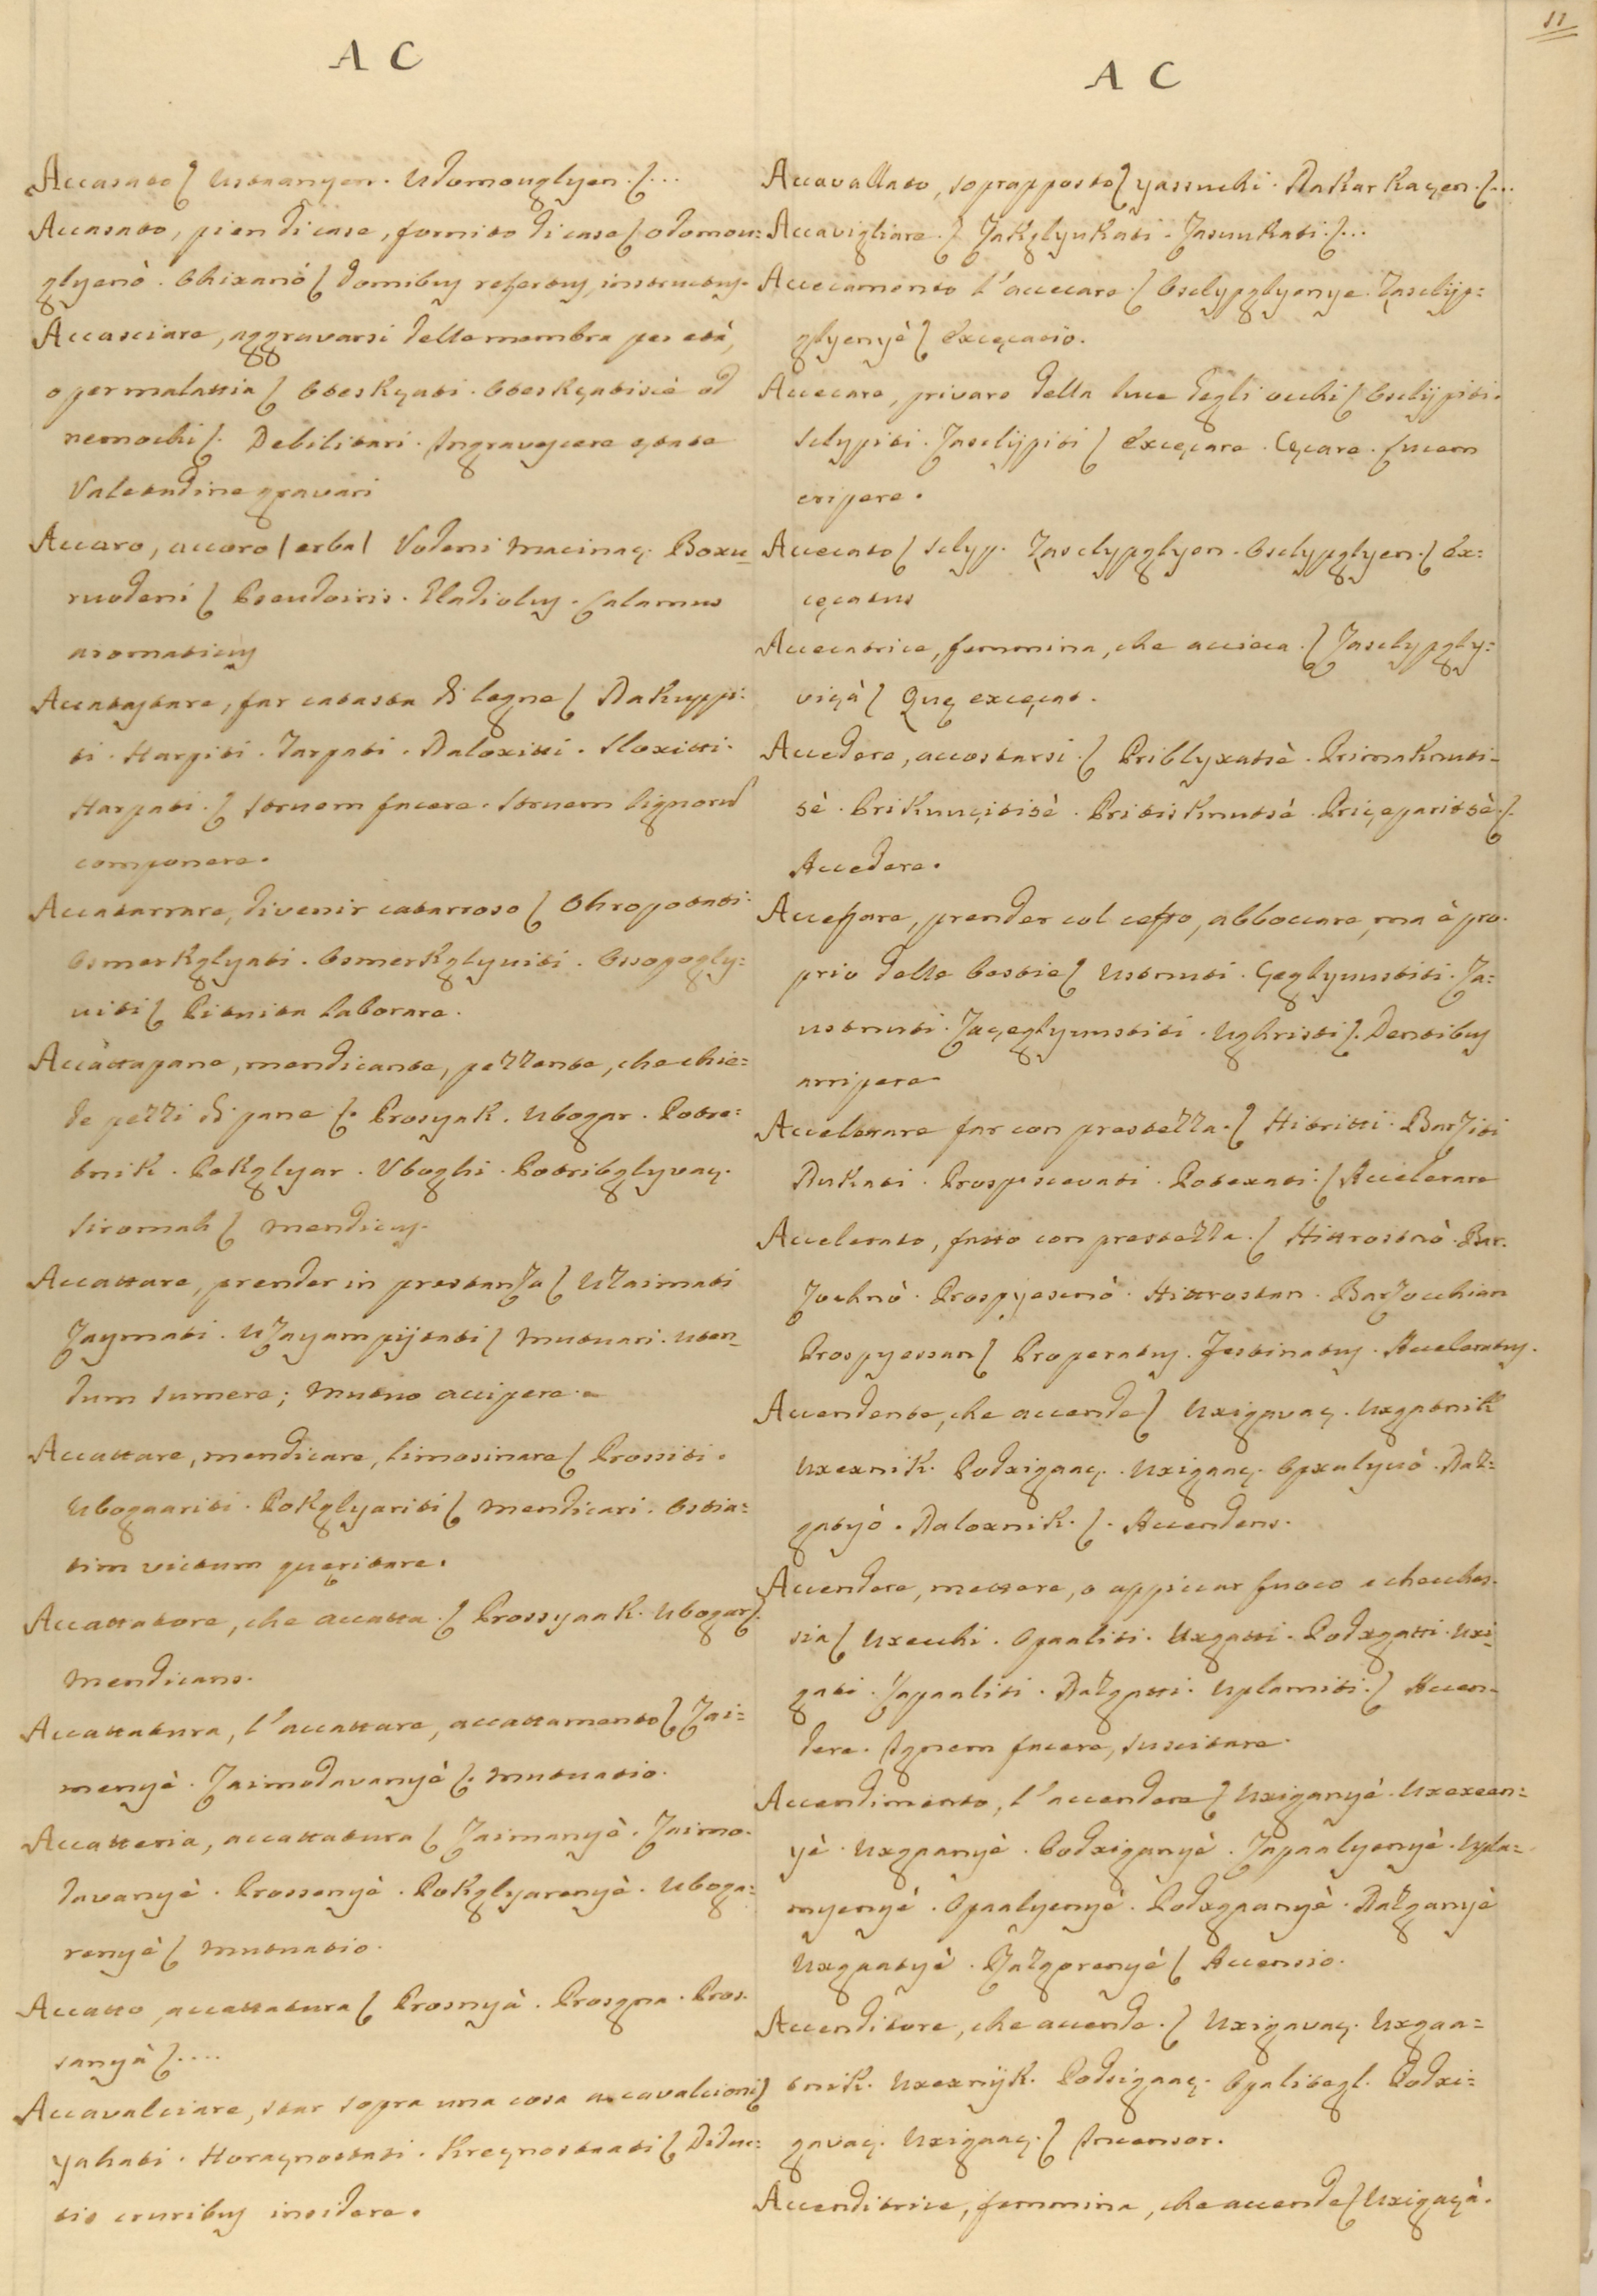 11
A C
Accasato ʃ Ustaanyen. Udomouglyen. ʃ...
Accasato, pien di case, fornito di case ʃ odomou=
glyenò. Okixanò ʃ domibus refertus, instructus.
Accasciare, aggravarsi delle membra per età,
o per malattia ʃ Oteskçati. Oteskçatisiè od
nemochi ʃ. Debilitari. Ingravescere ętate
Valetudine gravari
Accaro, accoro /erba/ Vodeni macinaç. Boxu=
ruodeni ʃ Pseudoiris. Gladiolus. Calamus
aromaticus
Accatastare, far catasta di legne ʃ Nakuppi=
ti. Harpiti. Zarpati. Naloxitti. Sloxitti.
Harpati. ʃ struem facere. struem lignorum
componere.
Accatarrare, divenir catarroso ʃ Ohropotati.
Osmerkglyati. Osmerkglyuiti. Ossopogly=
uiti ʃ Pituita laborare.
Accattapane, mendicante, pezzente, che chie=
de pezzi di pane ʃ. Prosyak. Ubogar. Potre=
bnik. Pokglyar. Uboghi. Potribglyvaç.
Siromah ʃ mendicus.
Accattare, prender in prestanza ʃ Uzaimati
Zaymati. Uzayam pijtati ʃ mutuari. uten=
dum sumere; mutuo accipere.
Accattare, mendicare, limosinare ʃ Prossiti.
Ubogaariti. Pokglyariti ʃ mendicari. Ostia=
tim victum quęritare.
Accattatore, che accatta. ʃ Prossyaak. Ubogar ʃ.
mendicans.
Accattatura, l'accattare, accattamento ʃ Zai=
menyè. Zaimodavanyè ʃ. mutuatio.
Accatteria, accattatura ʃ Zaimanyè. Zaimo=
davanyè. Prossenyè. Pokglyarenyè. Uboga=
renyè ʃ mutuatio.
Accatto, accattatura ʃ Prosnyà. Prosgna. Pros=
sanyà ʃ....
Accavalciare, star sopra una cosa a cavalcioni ʃ
yahati. Horaçnostati. Kreçnostaati ʃ Diduc=
tis cruribus insidere.
A C
Accavallato, soprapposto ʃ yassuchi. Nakarkaçen. ʃ...
Accavigliare. ʃ Zakglyukati. Zasuukati. ʃ...
Accecamento l'accecare. ʃ Osclypglyenye. Zasclijp=
glyenyè ʃ Excęcatio.
Accecare, privare della luce degli occhi ʃ Osclijpiti.
Sclypiti. Zasclijpiti ʃ Excęcare. Cęcare. Lucem
eripere.
Accecato ʃ Sclyp. Zasclypglyen. Osclypglyen. ʃ Ex=
cęcatus
Accecatrice, femmina, che accieca. ʃ Zasclypgly=
viçà ʃ Quę excęcat.
Accedere, accostarsi. ʃ Priblyxatsè. Primaknuti=
sè. Prikuuçitisè. Pritisknutsè. Priçeparitsè. ʃ.
Accedere.
Acceffare, prender col ceffo, abboccare, ma è pro=
prio delle bestie ʃ Ustnuti. Çeglyuustiti. Za=
ustnuti. Zaçeglyuustiti. Ughristi ʃ. Dentibus
arripere
Accelerare far con prestezza. ʃ Hitritti. Barziti
Nukati. Prospiscevati. Potexati. ʃ Accelerare
Accelerato, fatto con prestezza. ʃ Hittrostnò. Bar=
zochnò. Prospyescnò. Hittrostan. Barzocchian
Prospyessan ʃ Properatus. Festinatus. Acceleratus.
Accendente, che accende ʃ Uxigavaç. Uxgatnik
Uxexnik. Podxigaaç. Uxigaaç. Opxalyuò. Naz=
gatyò. Naloxnik. ʃ. Accendens.
Accendere, mettere, o appiccar fuoco a checches=
sia ʃ Uxecchi. Opaaliti. Uxgatti. Podxgatti. Uxi=
gati. Zapaaliti. Nazgatti. Uplamiti. ʃ Accen=
dere. Ignem facere, suscitare.
Accendimento, l'accendere ʃ Uxiganyè. Uxexeen=
yè. Uxgaanyè. Podxiganyè. Zapaalyenyè. Upla=
myenyè. Opaalyenyè. Podxgaanyè. Nazganyè
Uxgaatyè. Razgorenyè ʃ Accensio.
Accenditore, che accende. ʃ Uxigavaç. Uxgaa=
tnik. Uxexnijk. Podsigaaç. Opalitegl. Podxi=
gavaç. Uxigaaç. ʃ Incensor.
Accenditrice, femmina, che accende ʃ Uxigaçà.